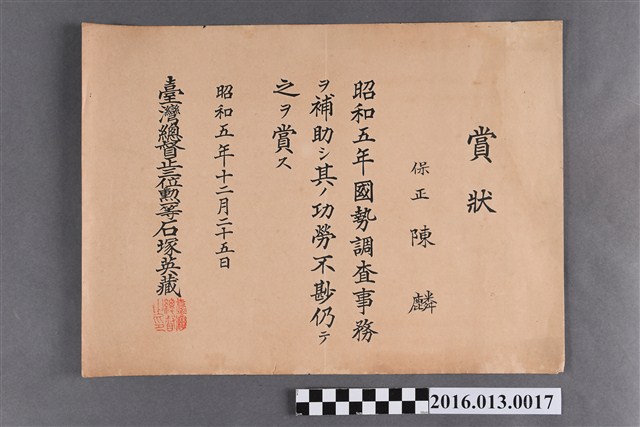 賞狀
保正 陳麟
昭和五年國勢調査事務
ヲ補助シ其ノ功勞不尠仍テ
之ヲ賞ス
昭和五年十二月二十五日
臺灣總督正三位勲一等石塚英藏
臺灣總督之印
2016.013.0017